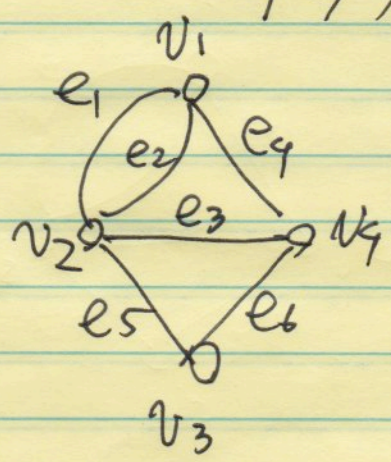 v1
e1
e2
e4
e3
v2
v4
e5
e6
v3